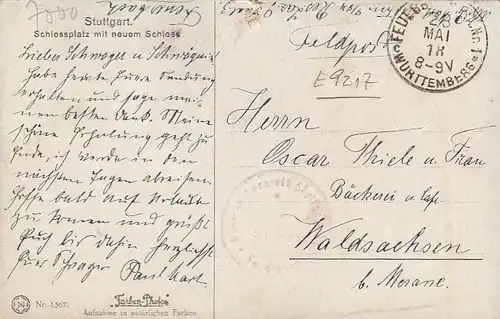 7000
Stuttgart.
Schlossplatz mit neuem Schloss
Lieber Schwager u Schwägerin
habe heute Eure Sendung
erhalten und sage mei-
nen besten Dank. Meine
schöne Erholung geht zu
Ende, ich werde in den
nächsten Tagen abreisen
hoffe bald auf Urlaub
zu kommen und grüßt
Euch bis dahin herzlichst
Euer Schwager Paul
Nr. 1567.
Farben-Photos
Aufnahme in natürlichen Farben
Feldpost
28
MAI
18
8-9V
WÜRTTEMBERG
E9217
Herrn
Oscar Thiele u Frau
Bäckerei u Cafe
Waldsachsen
b. Merane.